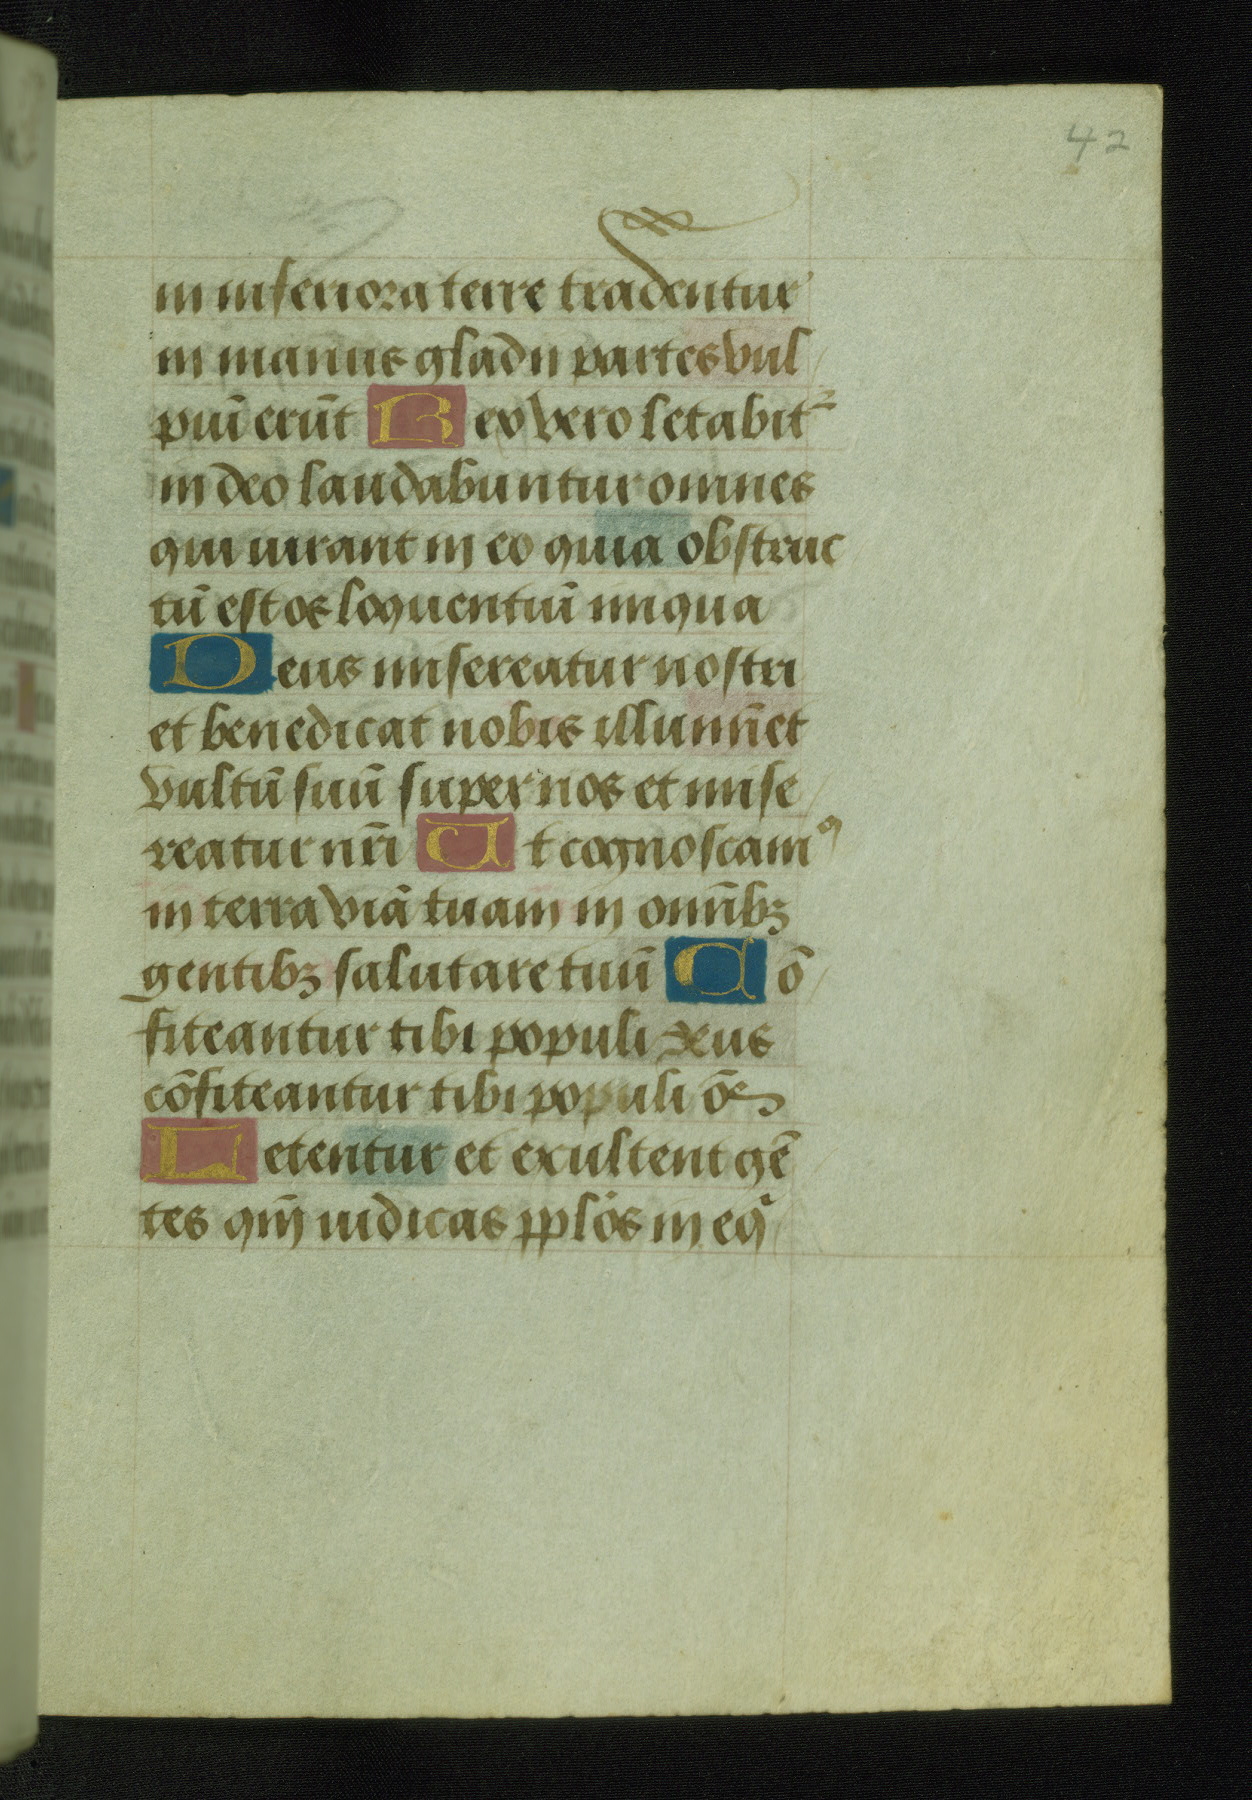 42
in inferiora terre tradentur
in manus gladii partes vul
piũ erũt Rex vero letabit᷑
in deo laudabuntur omnes
qui iurant in eo quia obstruc
tũ est os loquentiũ iniqua
Deus misereatur nostri
et benedicat nobis illumiñet
vultũ suũ super nos et mise
reatur nr̃i Ut cognoscamꝰ
in terra viã tuam in omĩbꝫ
gentibꝫ salutare tuũ Cõ
fiteantur tibi populi deus
cõfiteantur tibi populi õẽs
Letentur et exultent gẽ
tes qm̃ iudicas pplõs in eqͣ